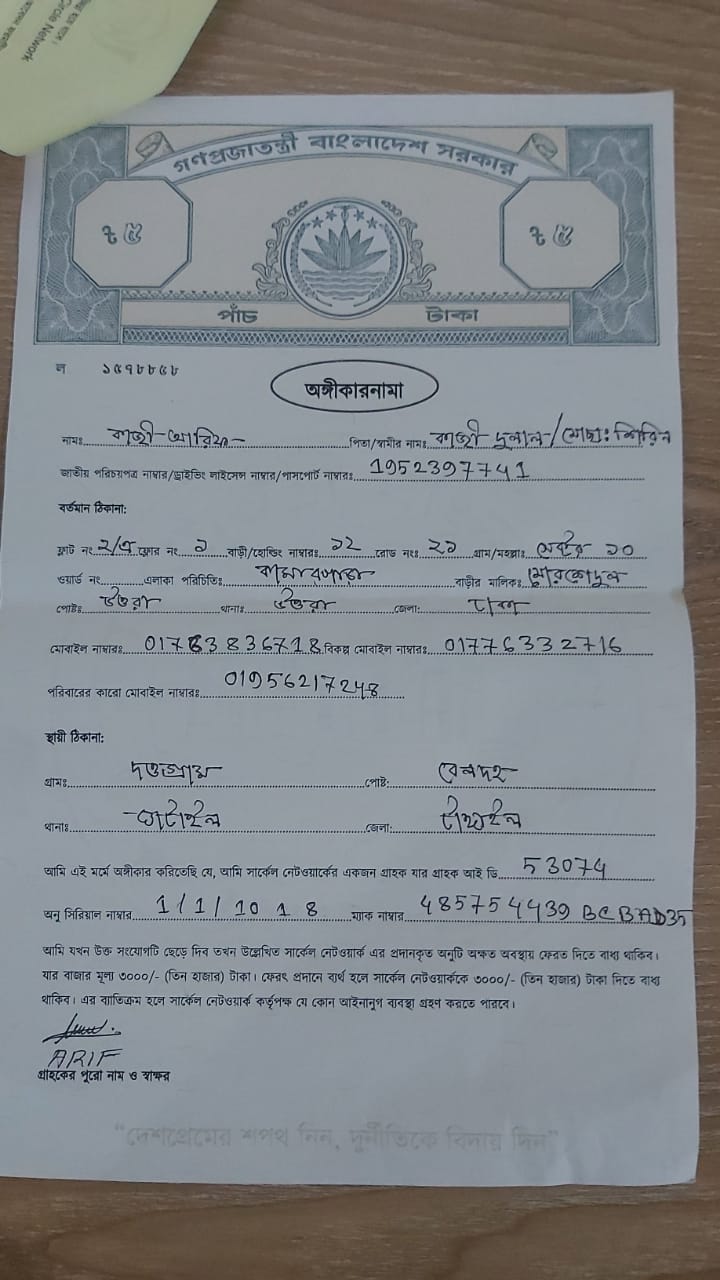 Circle Network
গণপ্রজাতন্ত্রী বাংলাদেশ সরকার
৳ ৫ ৳ ৫
পাঁচ টাকা
ল ১৫৭৮৮৫৮
অঙ্গীকারনামা
নামঃ কাজী আরিফ পিতা/স্বামীর নামঃ কাজী দুলাল/মোছাঃ শিরিন
জাতীয় পরিচয়পত্র নাম্বার/ড্রাইভিং লাইসেন্স নাম্বার/পাসপোর্ট নাম্বারঃ 1952397741
বর্তমান ঠিকানা:
ফ্লাট নং ২/এ ফ্লোর নং ১ বাড়ী/হোল্ডিং নাম্বারঃ ১২ রোড নংঃ ২১ গ্রাম/মহল্লাঃ সেক্টর ১০
ওয়ার্ড নং এলাকা পরিচিতিঃ কামারপাড়া বাড়ীর মালিকঃ
পোষ্টঃ উত্তরা থানাঃ উত্তরা জেলা: ঢাকা
মোবাইল নাম্বারঃ 01763836718 বিকল্প মোবাইল নাম্বারঃ 01776332716
পরিবারের কারো মোবাইল নাম্বারঃ 01956217248
স্থায়ী ঠিকানা:
গ্রামঃ দত্তগ্রাম পোষ্ট:
থানাঃ ঘাটাইল জেলা: টাঙ্গাইল
আমি এই মর্মে অঙ্গীকার করিতেছি যে, আমি সার্কেল নেটওয়ার্কের একজন গ্রাহক যার গ্রাহক আই ডি 53074
অনু সিরিয়াল নাম্বার 1/1/10 1 8 ম্যাক নাম্বার 485754439 BCBAD35
আমি যখন উক্ত সংযোগটি ছেড়ে দিব তখন উল্লেখিত সার্কেল নেটওয়ার্ক এর প্রদানকৃত অনুটি অক্ষত অবস্থায় ফেরত দিতে বাধ্য থাকিব।
যার বাজার মূল্য ৩০০০/- (তিন হাজার) টাকা। ফেরৎ প্রদানে ব্যর্থ হলে সার্কেল নেটওয়ার্ককে ৩০০০/- (তিন হাজার) টাকা দিতে বাধ্য
থাকিব। এর ব্যতিক্রম হলে সার্কেল নেটওয়ার্ক কর্তৃপক্ষ যে কোন আইনানুগ ব্যবস্থা গ্রহণ করতে পারবে।
ARIF
গ্রাহকের পুরো নাম ও স্বাক্ষর
"দেশপ্রেমের শপথ নিন, দুর্নীতিকে বিদায় দিন"